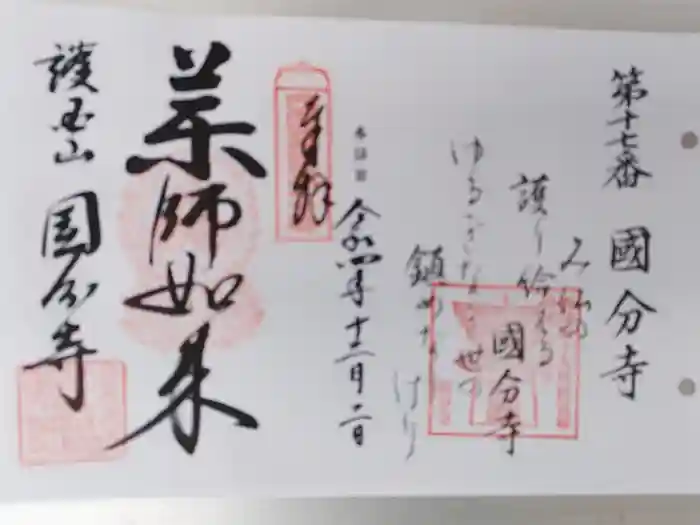 第十七番 國分寺
み仏の
護り給える
ゆるぎなき世の
鎮めなりけり
國分寺
本誦
令和四年十二月二日
奉拝
薬師如来
護国山 国分寺